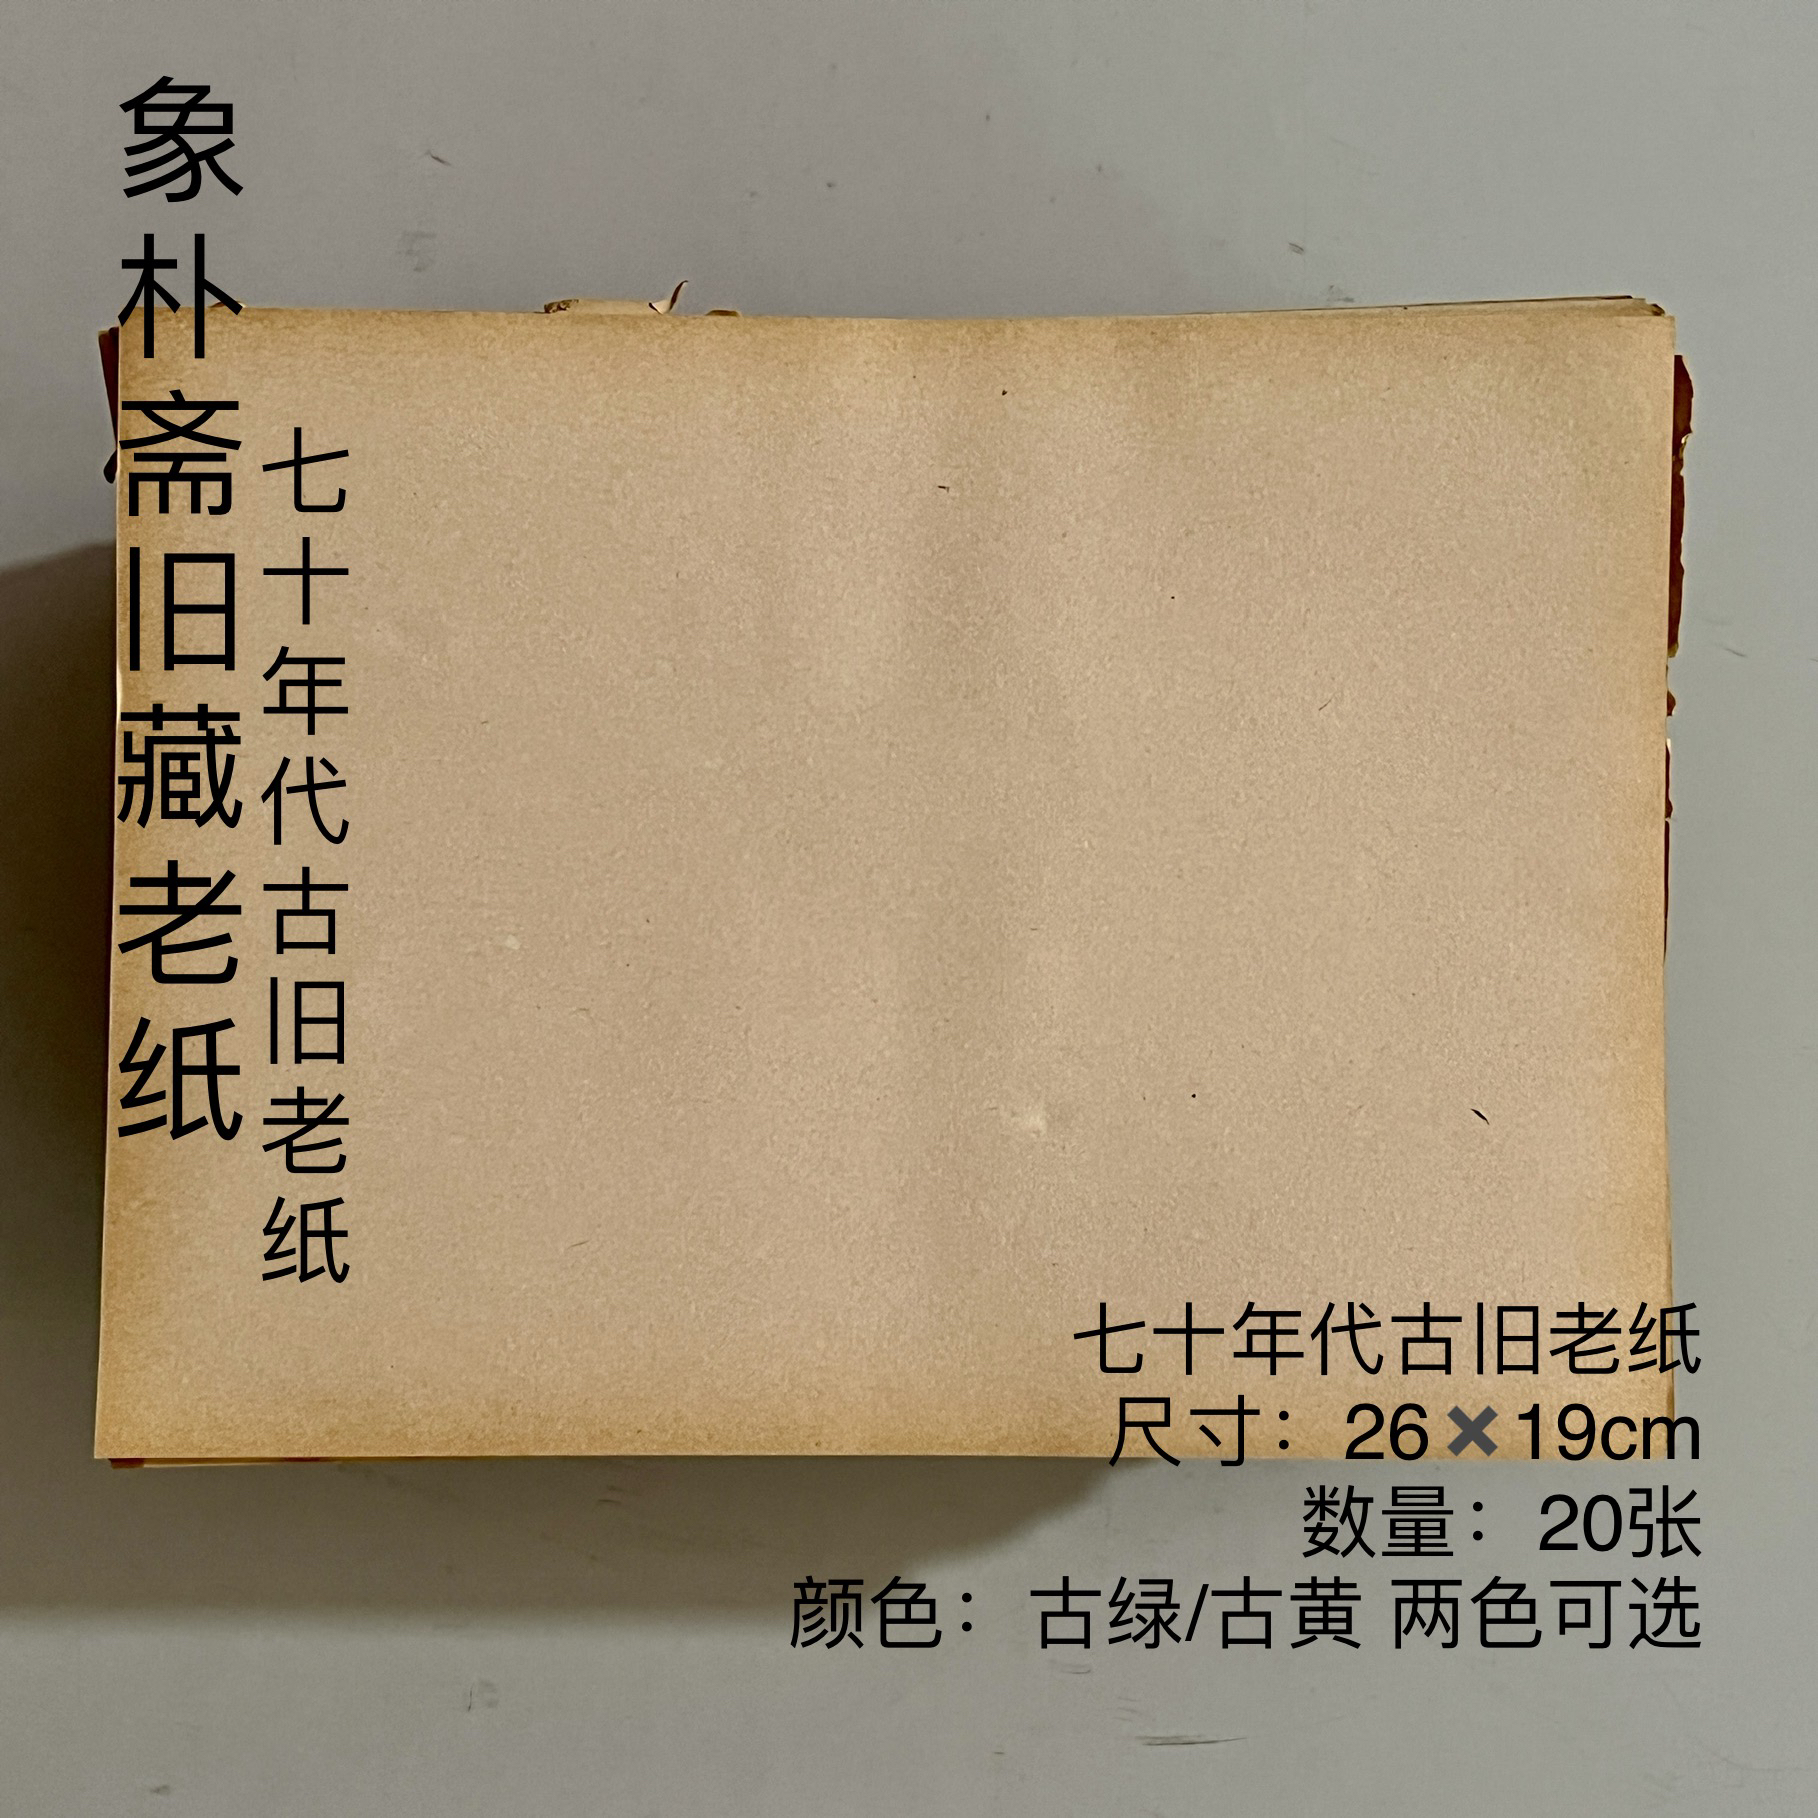 象朴斋旧藏老纸
七十年代古旧老纸
七十年代古旧老纸
尺寸：26✖️19cm
数量：20张
颜色：古绿/古黄 两色可选